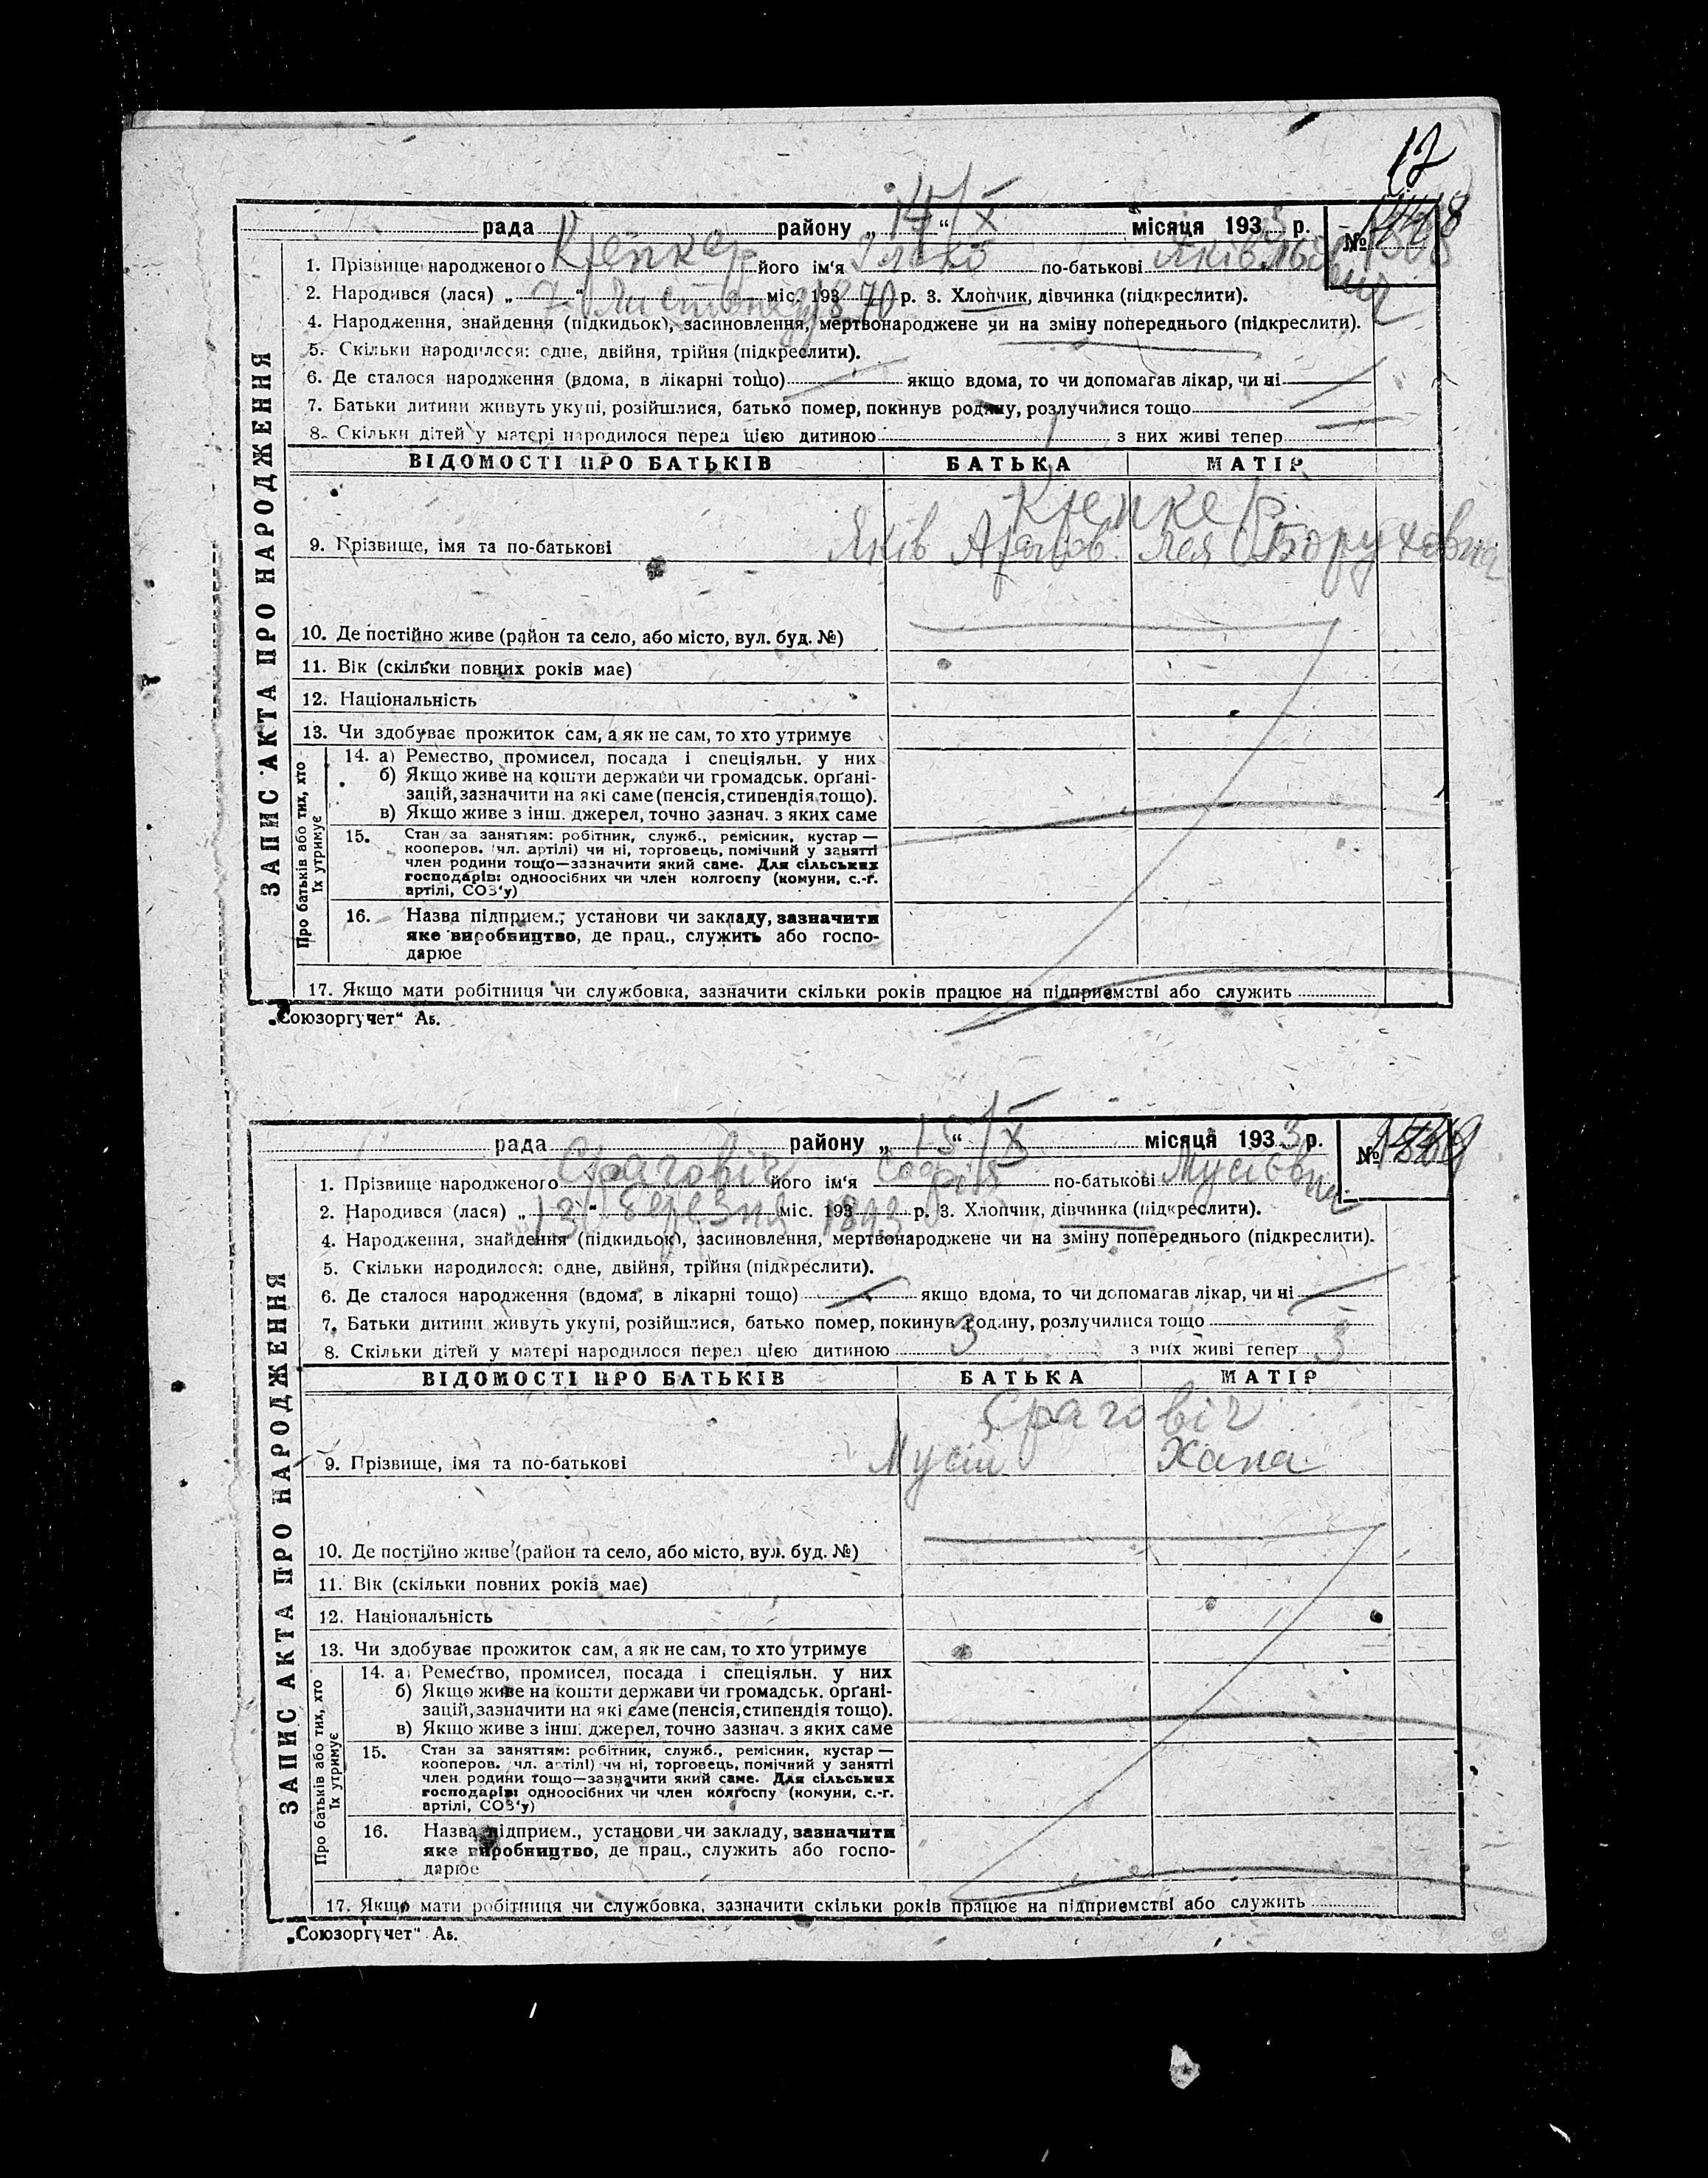 17
рада району „ 15/X “ місяця 1933 р. №
1. Прізвище народженого Кренкер його ім‘я Ілько по-батькові Яківльович
2. Народився (лася) „ 7 “ Листопад міс. 193 1870 р. 3. Хлопчик, дівчинка (підкреслити).
4. Народження, знайдення (підкидьок), засиновлення, мертвонароджене чи на зміну попереднього (підкреслити).
5. Скільки народилося: одне, двійня, трійня (підкреслити).
6. Де сталося народження (вдома, в лікарні тощо) якщо вдома, то чи допомагав лікар, чи ні
7. Батьки дитини живуть укупі, розійшлися, батько помер, покинув родину, розлучилися тощо
8. Скільки дітей у матері народилося перед цією дитиною з них живі тепер
ЗАПИС АКТА ПРО НАРОДЖЕННЯ
ВІДОМОСТІ ПРО БАТЬКІВ БАТЬКА МАТІР
Кренкер
9. Прізвище, імя та по-батькові Яків Лея Боруховна
10. Де постійно живе (район та село, або місто, вул. буд. №)
11. Вік (скільки повних років має)
12. Національність
13. Чи здобуває прожиток сам, а як не сам, то хто утримує
Про батьків або тих, хто їх утримує
14. а) Ремество, промисел, посада і спеціяльн. у них
б) Якщо живе на кошти держави чи громадськ. орґані-
зацій, зазначити на які саме (пенсія, стипендія тощо).
в) Якщо живе з інш. джерел, точно зазнач. з яких саме
15. Стан за заняттям: робітник, служб., ремісник, кустар —
кооперов. (чл. артілі) чи ні, торговець, помічний у занятті
член родини тощо—зазначити який саме. Для сільських
господарів: одноосібних чи член колгоспу (комуни, с.-г.
артілі, СОЗ‘у)
16. Назва підприєм., установи чи закладу, зазначити
яке виробництво, де прац., служить або госпо-
дарює
17. Якщо мати робітниця чи службовка, зазначити скільки років працює на підприємстві або служить
„Союзоргучет“ Аб.
рада району „ 15/X “ місяця 1933 р. №
1. Прізвище народженого Єраговіч його ім‘я Софія по-батькові Мусіївна
2. Народився (лася) „ 13 “ Березня міс. 193 1893 р. 3. Хлопчик, дівчинка (підкреслити).
4. Народження, знайдення (підкидьок), засиновлення, мертвонароджене чи на зміну попереднього (підкреслити).
5. Скільки народилося: одне, двійня, трійня (підкреслити).
6. Де сталося народження (вдома, в лікарні тощо) якщо вдома, то чи допомагав лікар, чи ні
7. Батьки дитини живуть укупі, розійшлися, батько помер, покинув родину, розлучилися тощо
8. Скільки дітей у матері народилося перед цією дитиною 3 з них живі тепер 3
ЗАПИС АКТА ПРО НАРОДЖЕННЯ
ВІДОМОСТІ ПРО БАТЬКІВ БАТЬКА МАТІР
Єраговіч
9. Прізвище, імя та по-батькові Мусій Хана
10. Де постійно живе (район та село, або місто, вул. буд. №)
11. Вік (скільки повних років має)
12. Національність
13. Чи здобуває прожиток сам, а як не сам, то хто утримує
Про батьків або тих, хто їх утримує
14. а) Ремество, промисел, посада і спеціяльн. у них
б) Якщо живе на кошти держави чи громадськ. орґані-
зацій, зазначити на які саме (пенсія, стипендія тощо).
в) Якщо живе з інш. джерел, точно зазнач. з яких саме
15. Стан за заняттям: робітник, служб., ремісник, кустар —
кооперов. чл. артілі) чи ні, торговець, помічний у занятті
член родини тощо—зазначити який саме. Для сільських
господарів: одноосібних чи член колгоспу (комуни, с.-г.
артілі, СОЗ‘у)
16. Назва підприєм., установи чи закладу, зазначити
яке виробництво, де прац., служить або госпо-
дарює
17. Якщо мати робітниця чи службовка, зазначити скільки років працює на підприємстві або служить
„Союзоргучет“ Аб.